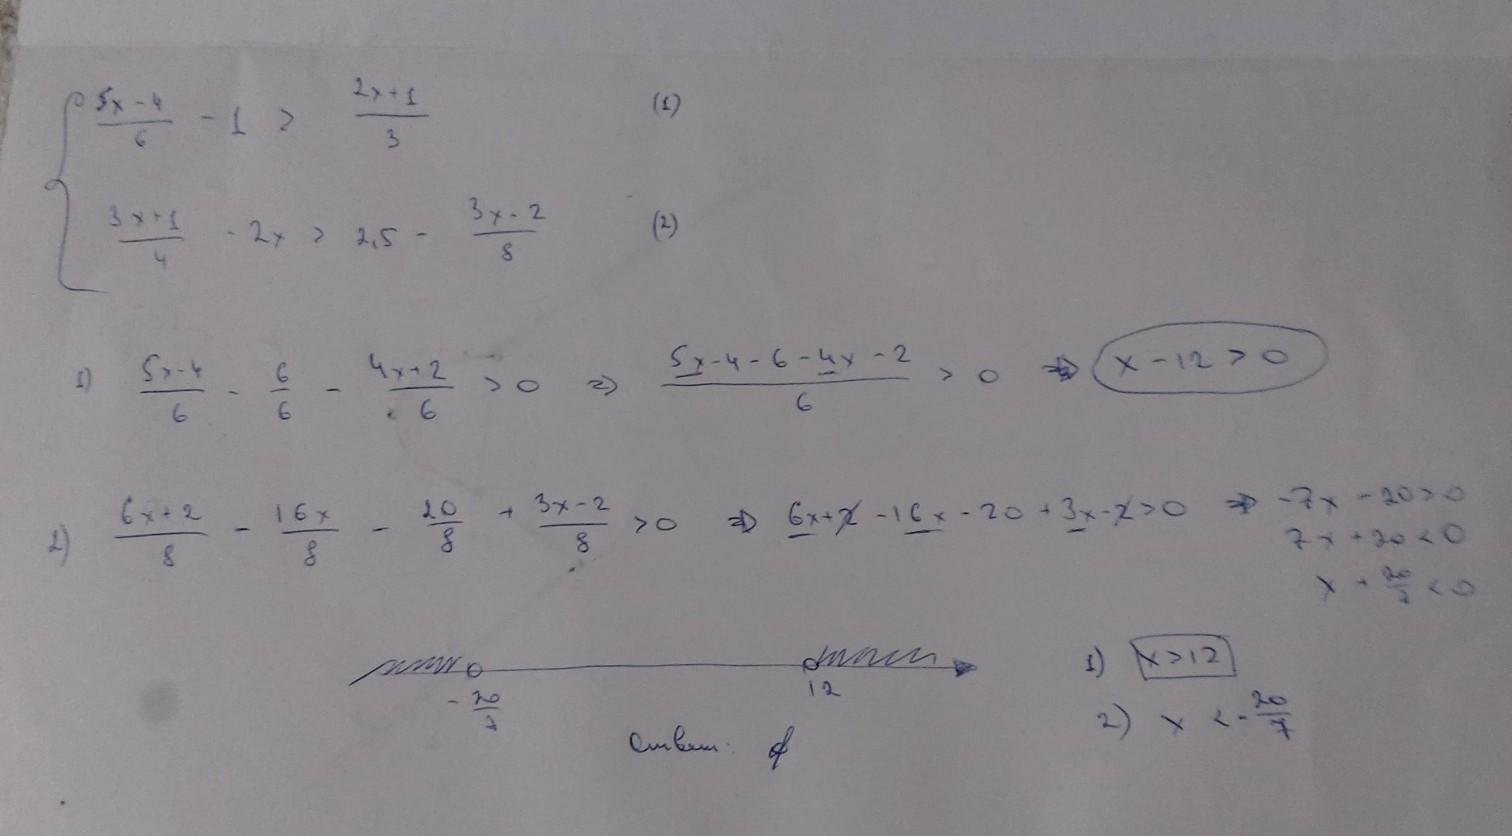 (5x-4)/6 - 1 > (2x+1)/3 (1)
(3x+1)/4 - 2x > 2,5 - (3x-2)/8 (2)
1) (5x-4)/6 - 6/6 - (4x+2)/6 > 0 => (5x-4-6-4x-2)/6 > 0 => x-12>0
2) (6x+2)/8 - 16x/8 - 20/8 + (3x-2)/8 >0 => 6x+2-16x-20+3x-2>0 => -7x-20>0
7x+20<0
x+20/7<0
-20/7 12
1) x>12
2) x<-20/7
Ответ: ∅